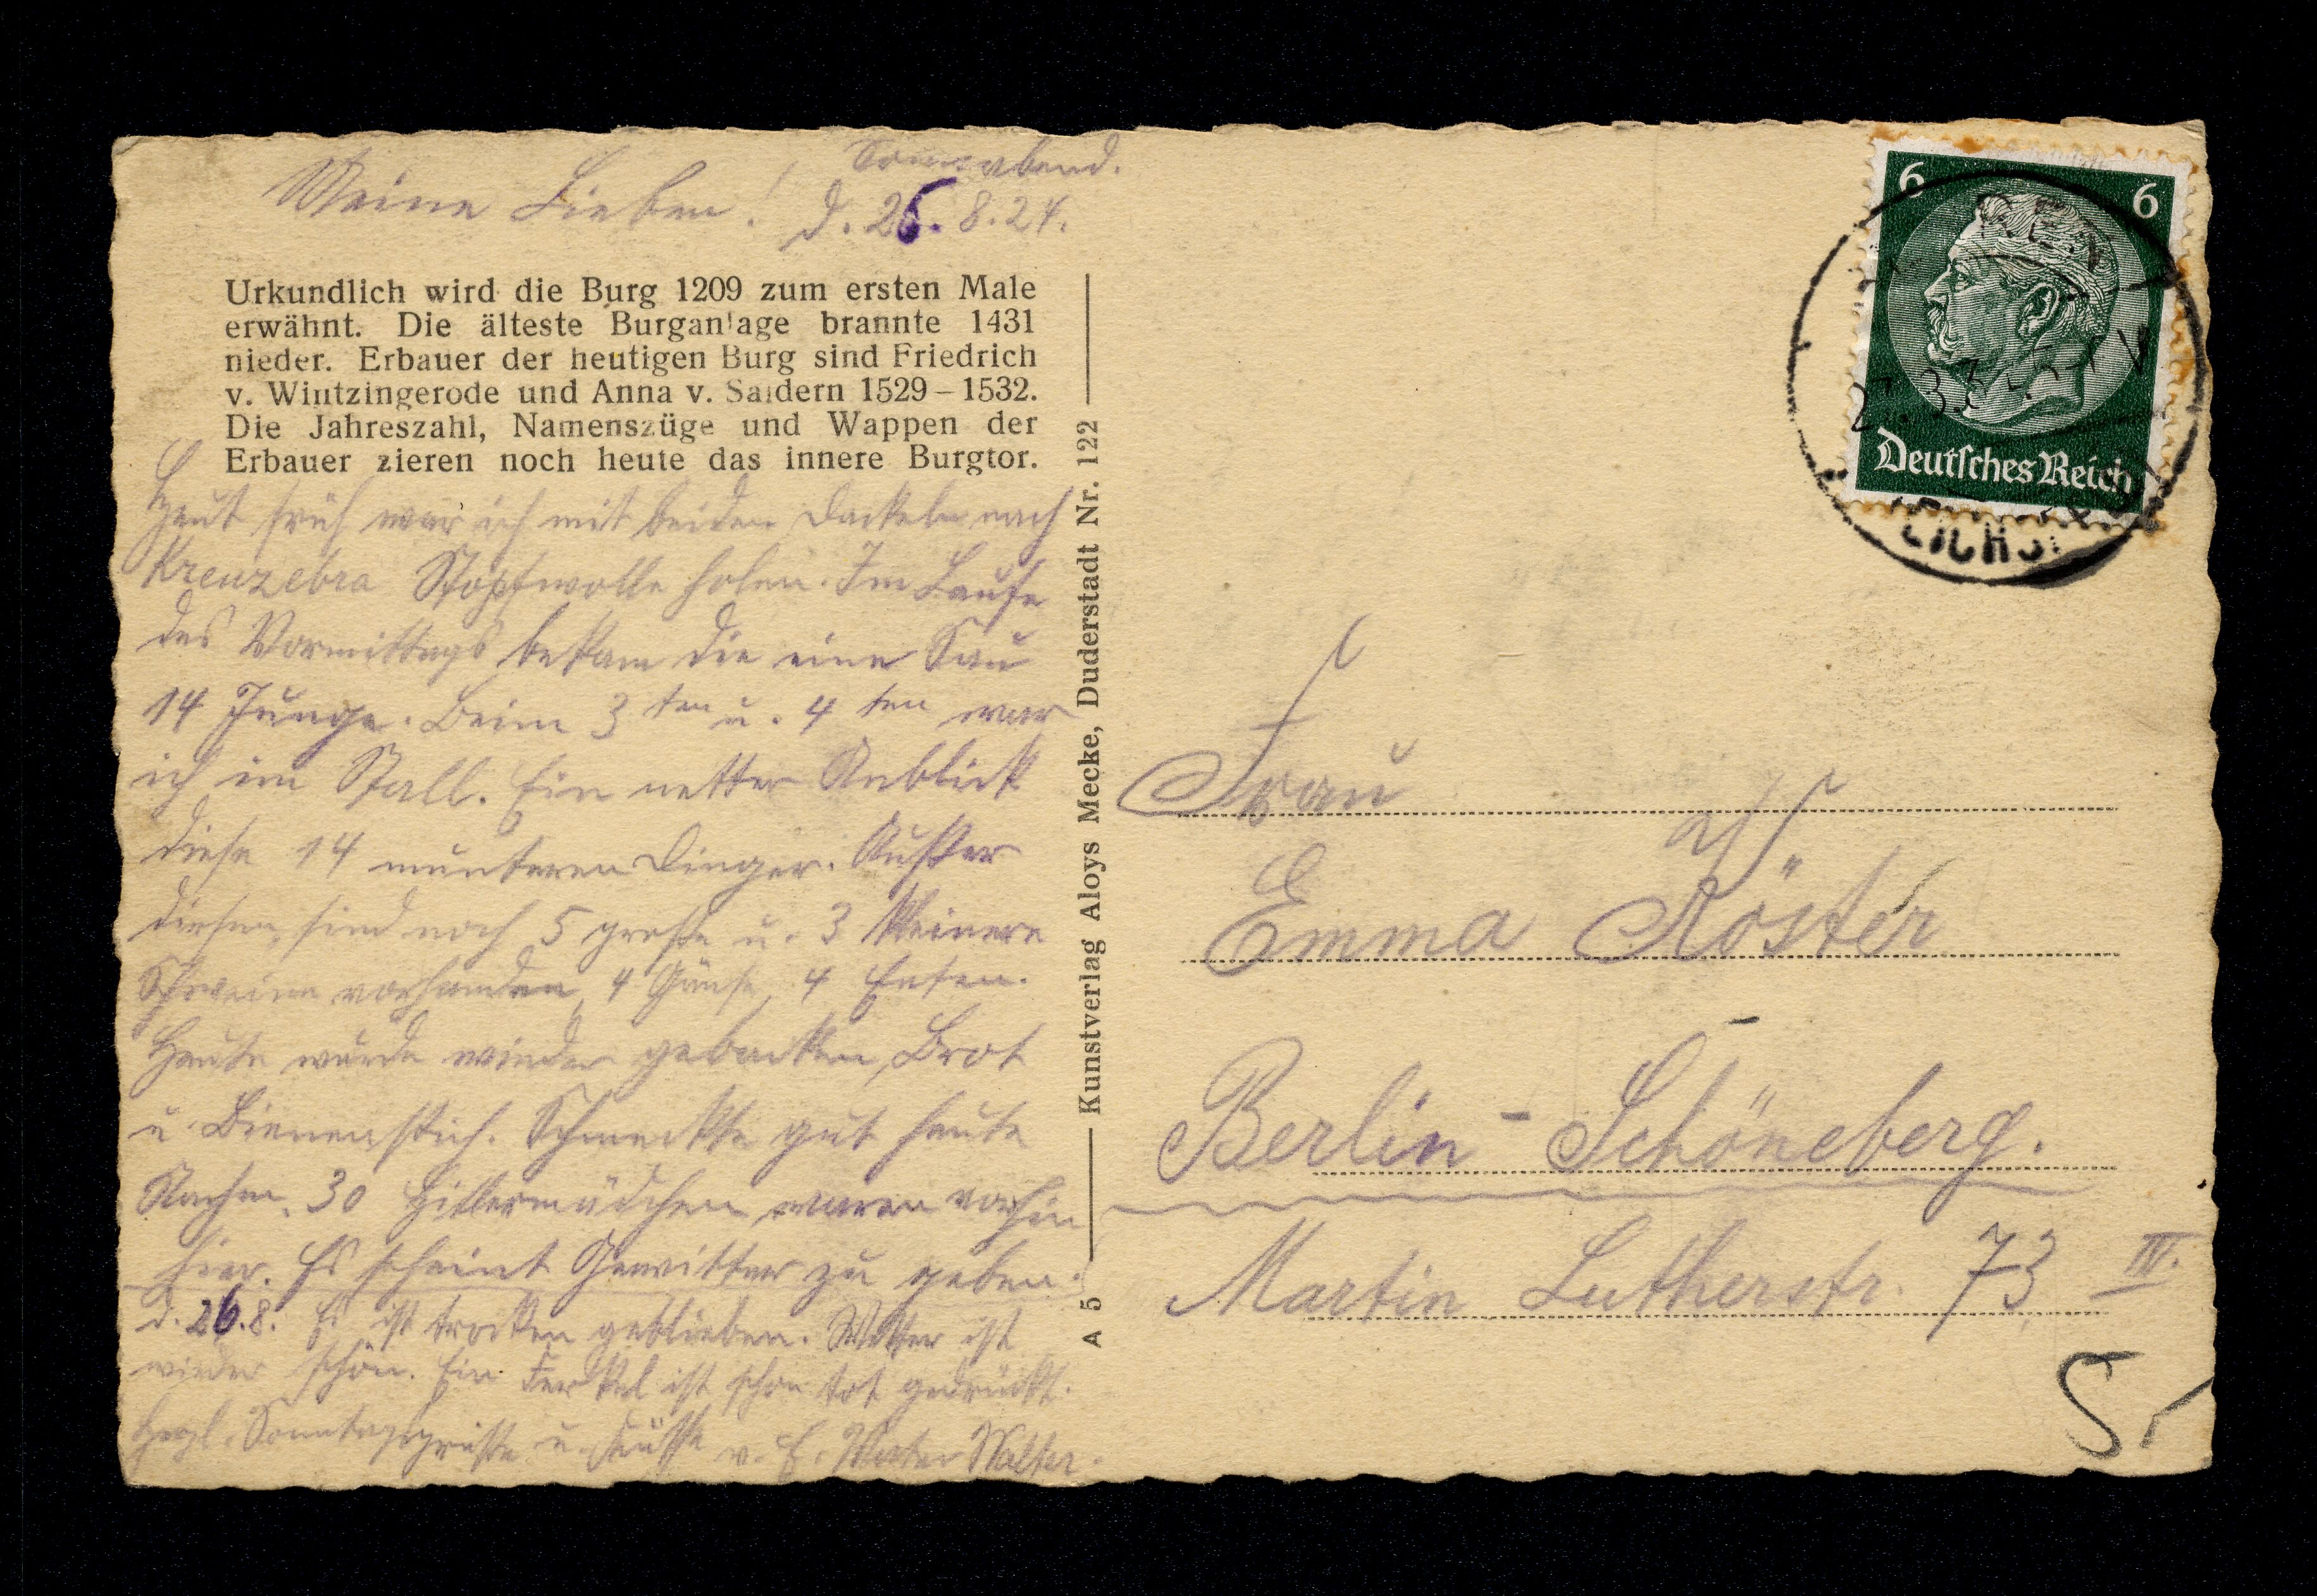 Sonnabend.
Meine Lieben! d. 26. 8. 24.
Urkundlich wird die Burg 1209 zum ersten Male
erwähnt. Die älteste Burganlage brannte 1431
nieder. Erbauer der heutigen Burg sind Friedrich
v. Wintzingerode und Anna v. Saldern 1529 – 1532.
Die Jahreszahl, Namenszüge und Wappen der
Erbauer zieren noch heute das innere Burgtor.
Heut früh war ich mit beiden Dackeln nach
Kreuzebra Stopfwolle holen. Im Laufe
des Vormittags bekam die eine Sau
14 Junge. Beim 3ten u. 4ten war
ich im Stall. Ein netter Anblick
diese 14 munteren Dinger. Außer
diesen, sind noch 5 große u. 3 kleinere
Schweine vorhanden, 4 Gänse, 4 Enten.
Heute wurde wieder gebacken, Brot
u. Bienenstich. Schmeckte gut heute
Nachm. 30 Hitlermädchen waren vorhin
hier. Es scheint Gewitter zu geben.
d. 26.8. Es ist trocken geblieben. Wetter ist
wieder schön. Ein Ferkel ist schon tot gedrückt.
Herzl. Sonntagsgrüße u. Küsse v. E. Vater Walter.
A 5 Kunstverlag Aloys Mecke, Duderstadt Nr. 122
6 6
Deutsches Reich
Frau
Emma Köster
Berlin - Schöneberg.
Martin Lutherstr. 73 III.